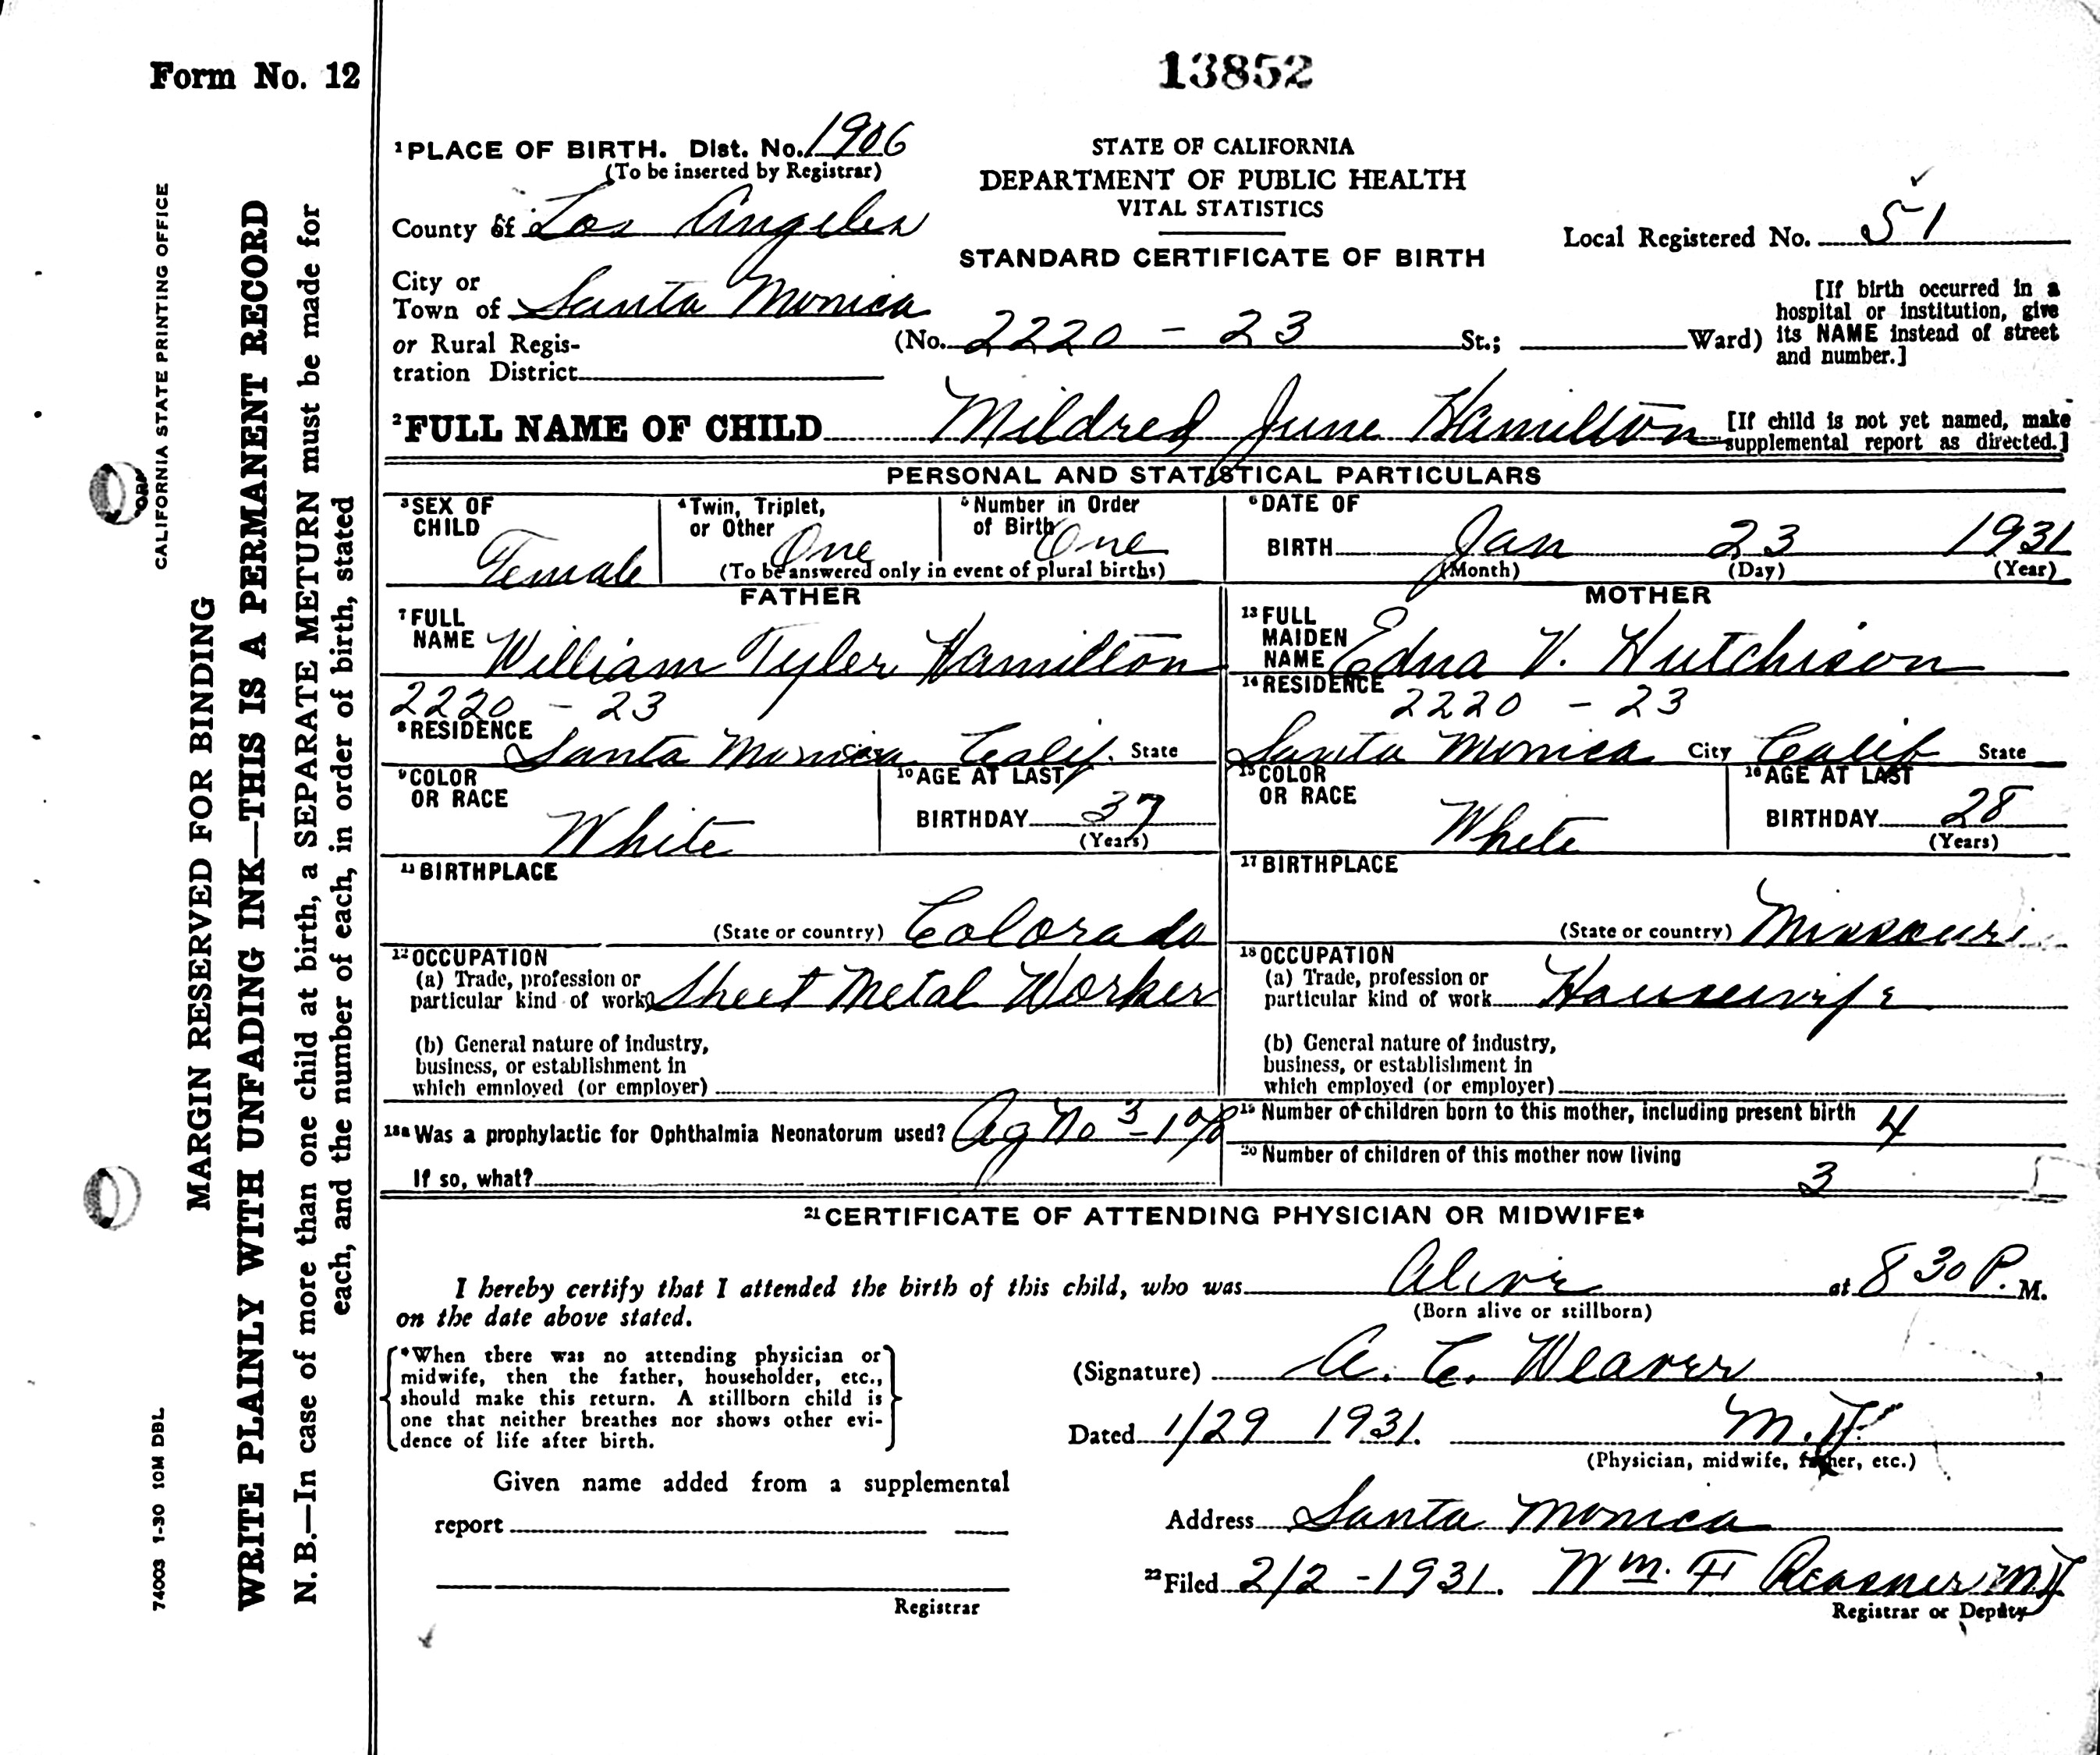 Form No. 12
13852
CALIFORNIA STATE PRINTING OFFICE
74003 1-30 10M DBL
MARGIN RESERVED FOR BINDING
WRITE PLAINLY WITH UNFADING INK—THIS IS A PERMANENT RECORD
N. B.—In case of more than one child at birth, a SEPARATE METURN must be made for
each, and the number of each, in order of birth, stated
1 PLACE OF BIRTH. Dist. No. 1906
(To be inserted by Registrar)
STATE OF CALIFORNIA
DEPARTMENT OF PUBLIC HEALTH
VITAL STATISTICS
STANDARD CERTIFICATE OF BIRTH
County of Los Angeles
Local Registered No. 51
City or
Town of Santa Monica
or Rural Regis-
tration District
(No. 2220 - 23 St.; Ward)
[If birth occurred in a
hospital or institution, give
its NAME instead of street
and number.]
2 FULL NAME OF CHILD Mildred June Hamilton
[If child is not yet named, make
supplemental report as directed.]
PERSONAL AND STATISTICAL PARTICULARS
3 SEX OF
CHILD
Female
4 Twin, Triplet,
or Other One
5 Number in Order
of Birth One
(To be answered only in event of plural births)
6 DATE OF
BIRTH Jan 23 1931
(Month) (Day) (Year)
FATHER
7 FULL
NAME William Tyler Hamilton
2220 - 23
8 RESIDENCE
Santa Monica Calif. State
9 COLOR
OR RACE
White
10 AGE AT LAST
BIRTHDAY 37
(Years)
11 BIRTHPLACE
(State or country) Colorado
12 OCCUPATION
(a) Trade, profession or
particular kind of work Sheet Metal Worker
(b) General nature of industry,
business, or establishment in
which employed (or employer)
MOTHER
13 FULL
MAIDEN
NAME Edna V. Hutchison
14 RESIDENCE
2220 - 23
Santa Monica City Calif State
15 COLOR
OR RACE
White
16 AGE AT LAST
BIRTHDAY 28
(Years)
17 BIRTHPLACE
(State or country) Missouri
18 OCCUPATION
(a) Trade, profession or
particular kind of work Housewife
(b) General nature of industry,
business, or establishment in
which employed (or employer)
18a Was a prophylactic for Ophthalmia Neonatorum used? Ag No 3 - 1%
If so, what?
19 Number of children born to this mother, including present birth 4
20 Number of children of this mother now living 3
21 CERTIFICATE OF ATTENDING PHYSICIAN OR MIDWIFE*
I hereby certify that I attended the birth of this child, who was Alive at 8 30 P. M.
(Born alive or stillborn)
on the date above stated.
*When there was no attending physician or
midwife, then the father, householder, etc.,
should make this return. A stillborn child is
one that neither breathes nor shows other evi-
dence of life after birth.
(Signature) A. C. Weaver
Dated 1/29 1931. M.D.
(Physician, midwife, father, etc.)
Given name added from a supplemental
report
Registrar
Address Santa Monica
22 Filed 2/2 - 1931. Wm. H Reasner MD
Registrar or Deputy